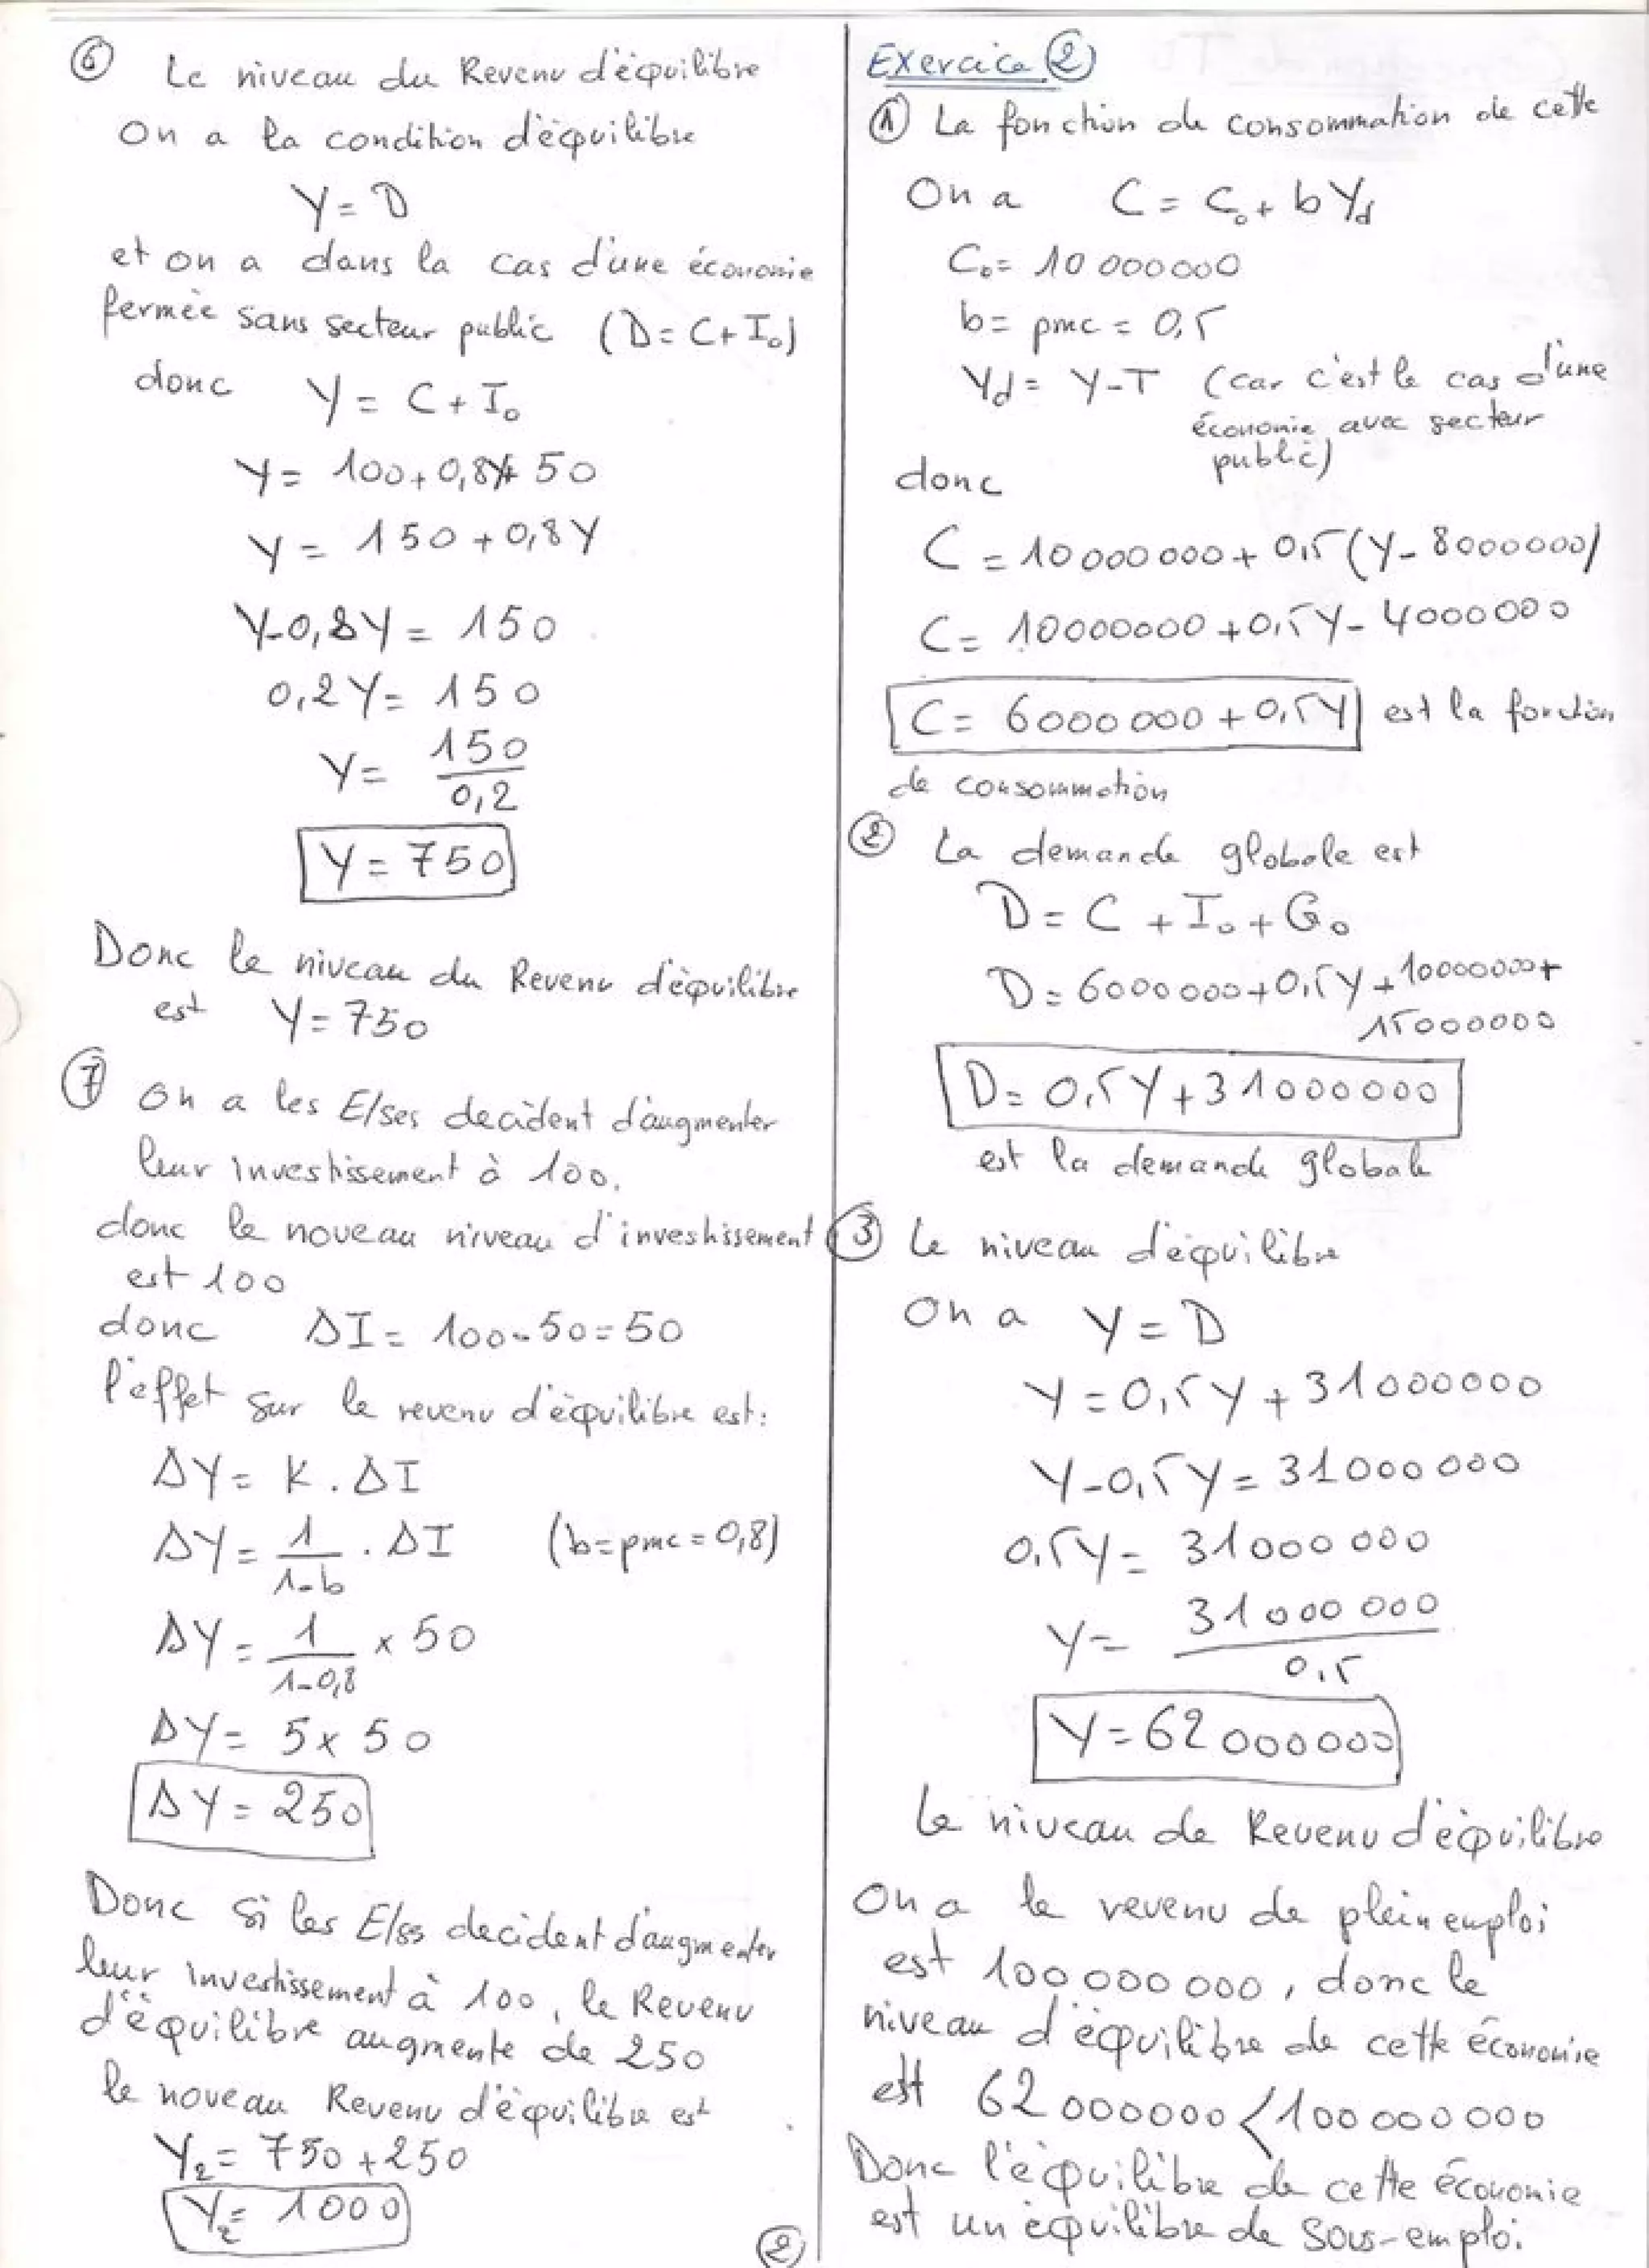 ⑥ Le niveau du Revenu d'équilibre
On a la condition d'équilibre
Y = D
et on a dans la cas d'une économie
fermée sans secteur public (D = C + I₀)
donc Y = C + I₀
Y = 100 + 0,8Y + 50
Y = 150 + 0,8Y
Y - 0,8Y = 150
0,2Y = 150
Y = 150 / 0,2
Y = 750
Donc le niveau du Revenu d'équilibre
est Y = 750
⑦ On a les E/ses decident d'augmenter
leur investissement à 100.
donc le noveau niveau d'investissement
est 100
donc ΔI = 100 - 50 = 50
l'effet sur le revenu d'équilibre est :
ΔY = K . ΔI
ΔY = 1 / 1-b . ΔI (b = pmc = 0,8)
ΔY = 1 / 1-0,8 x 50
ΔY = 5 x 50
ΔY = 250
Donc si les E/ses decident d'augmenter
leur investissement à 100, le Revenu
d'équilibre augmente de 250
le noveau Revenu d'équilibre est
Y₂ = 750 + 250
Y₂ = 1000
②
Exercice ②
① La fonction de consommation de cette
On a C = C₀ + bYd
C₀ = 10 000000
b = pmc = 0,5
Yd = Y - T (car c'est le cas d'une
économie avec secteur
public)
donc
C = 10000000 + 0,5(Y - 8000000)
C = 10000000 + 0,5Y - 4000000
C = 6000000 + 0,5Y est la fonction
de consommation
② La demande globale est
D = C + I₀ + G₀
D = 6000000 + 0,5Y + 10000000 +
15000000
D = 0,5Y + 31000000
est la demande globale
③ Le niveau d'équilibre
On a Y = D
Y = 0,5Y + 31000000
Y - 0,5Y = 31000 000
0,5Y = 31000 000
Y = 31000 000 / 0,5
Y = 62 000000
Le niveau de Revenu d'équilibre
On a le revenu de plein emploi
est 100 000 000, donc le
niveau d'équilibre de cette économie
est 62 000000 < 100 000 000
Donc l'équilibre de cette économie
est un équilibre de sous-emploi.